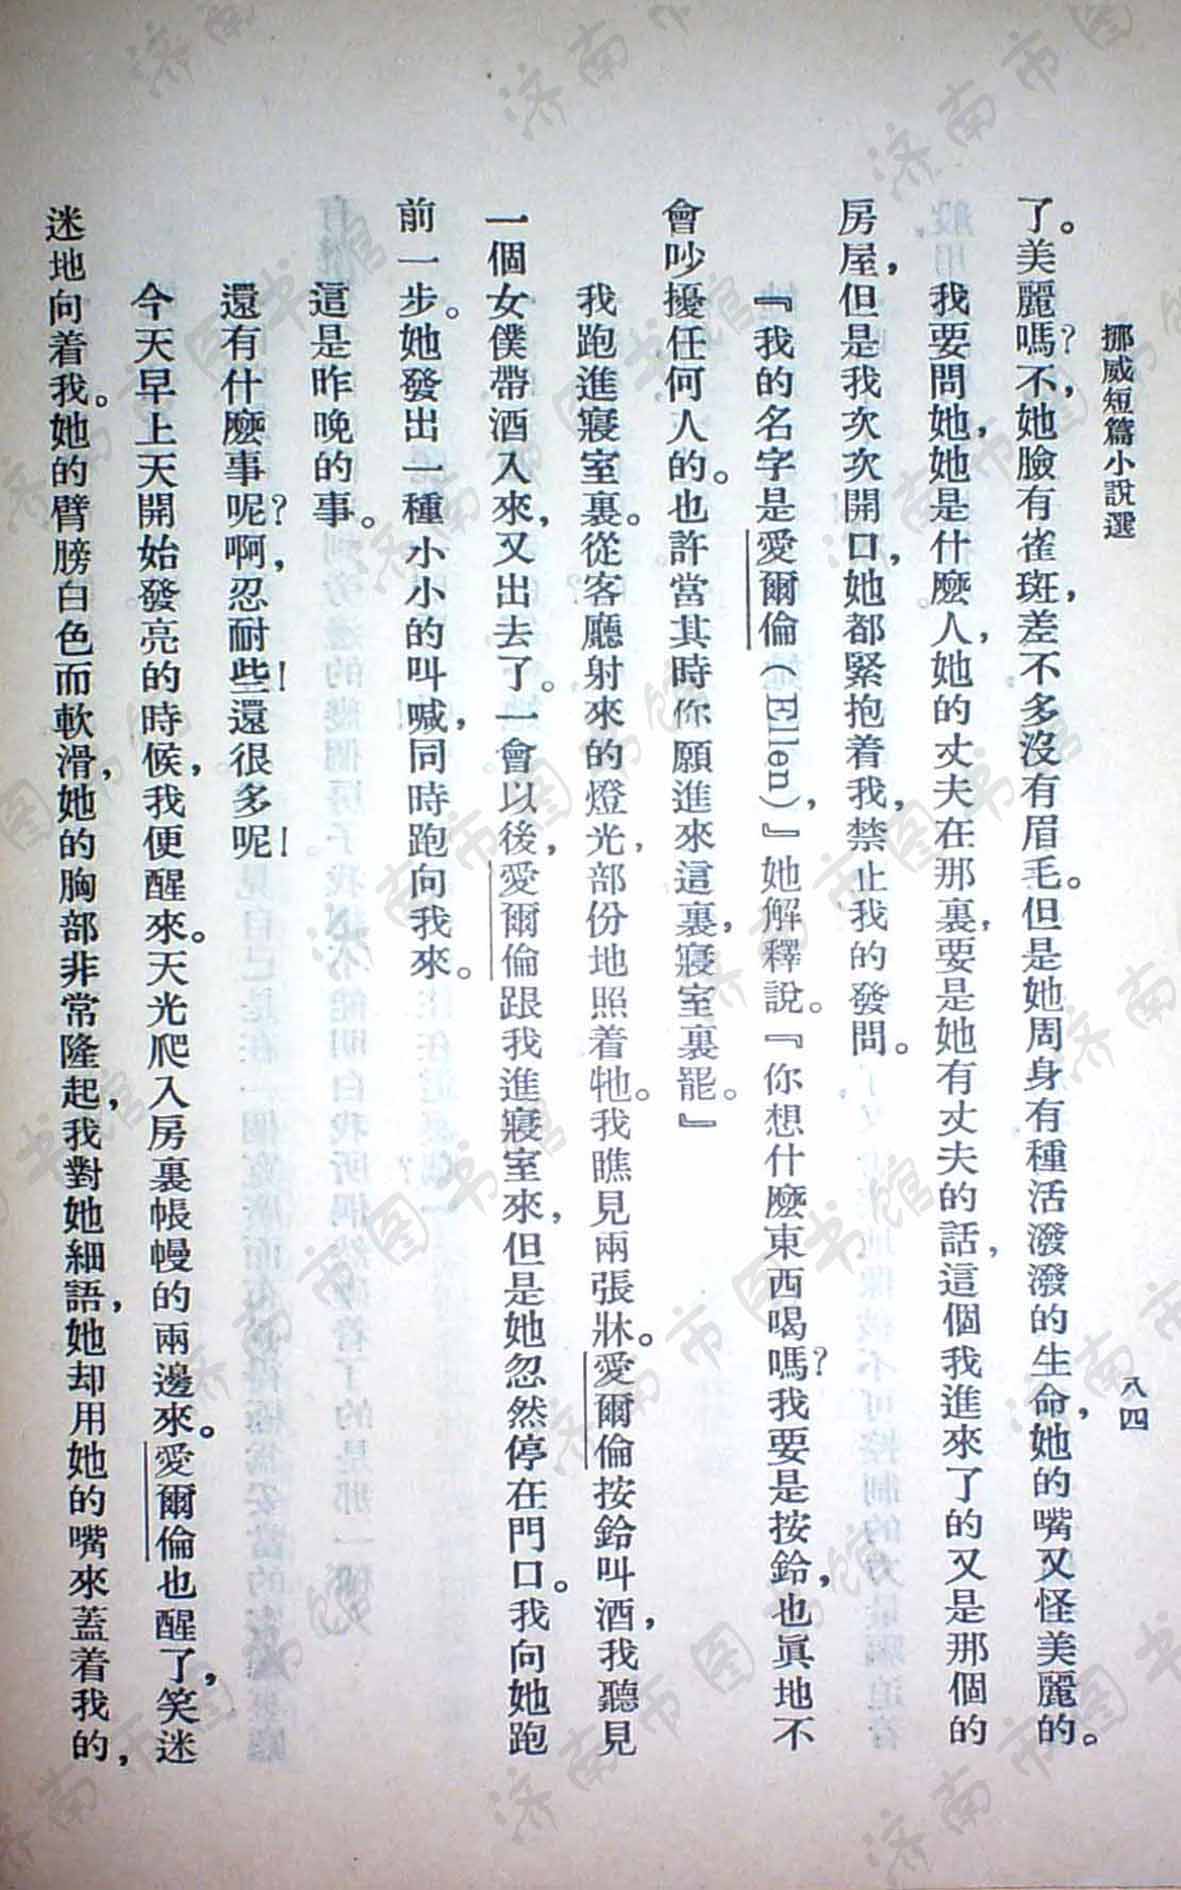 挪威短篇小說選
八四
了。美麗嗎？不，她臉有雀斑，差不多沒有眉毛。但是她周身有種活潑潑的生命，她的嘴又怪美麗的。
我要問她，她是什麼人，她的丈夫在那裏，要是她有丈夫的話，這個我進來了的又是那個的
房屋，但是我次次開口，她都緊抱着我，禁止我的發問。
『我的名字是愛爾倫(Ellen)，』她解釋說。『你想什麼東西喝嗎？我要是按鈴，也眞地不
會吵擾任何人的。也許當其時你願進來這裏，寢室裏罷。』
我跑進寢室裏。從客廳射來的燈光，部份地照着牠。我瞧見兩張牀。愛爾倫按鈴叫酒，我聽見
一個女僕帶酒入來，又出去了。一會以後，愛爾倫跟我進寢室來，但是她忽然停在門口。我向她跑
前一步。她發出一種小小的叫喊，同時跑向我來。
這是昨晚的事。
還有什麼事呢？啊，忍耐些！還很多呢！
今天早上天開始發亮的時候，我便醒來。天光爬入房裏帳幔的兩邊來。愛爾倫也醒了，笑迷
迷地向着我。她的臂膀白色而軟滑，她的胸部非常隆起，我對她細語，她却用她的嘴來蓋着我的，
济南市图书馆